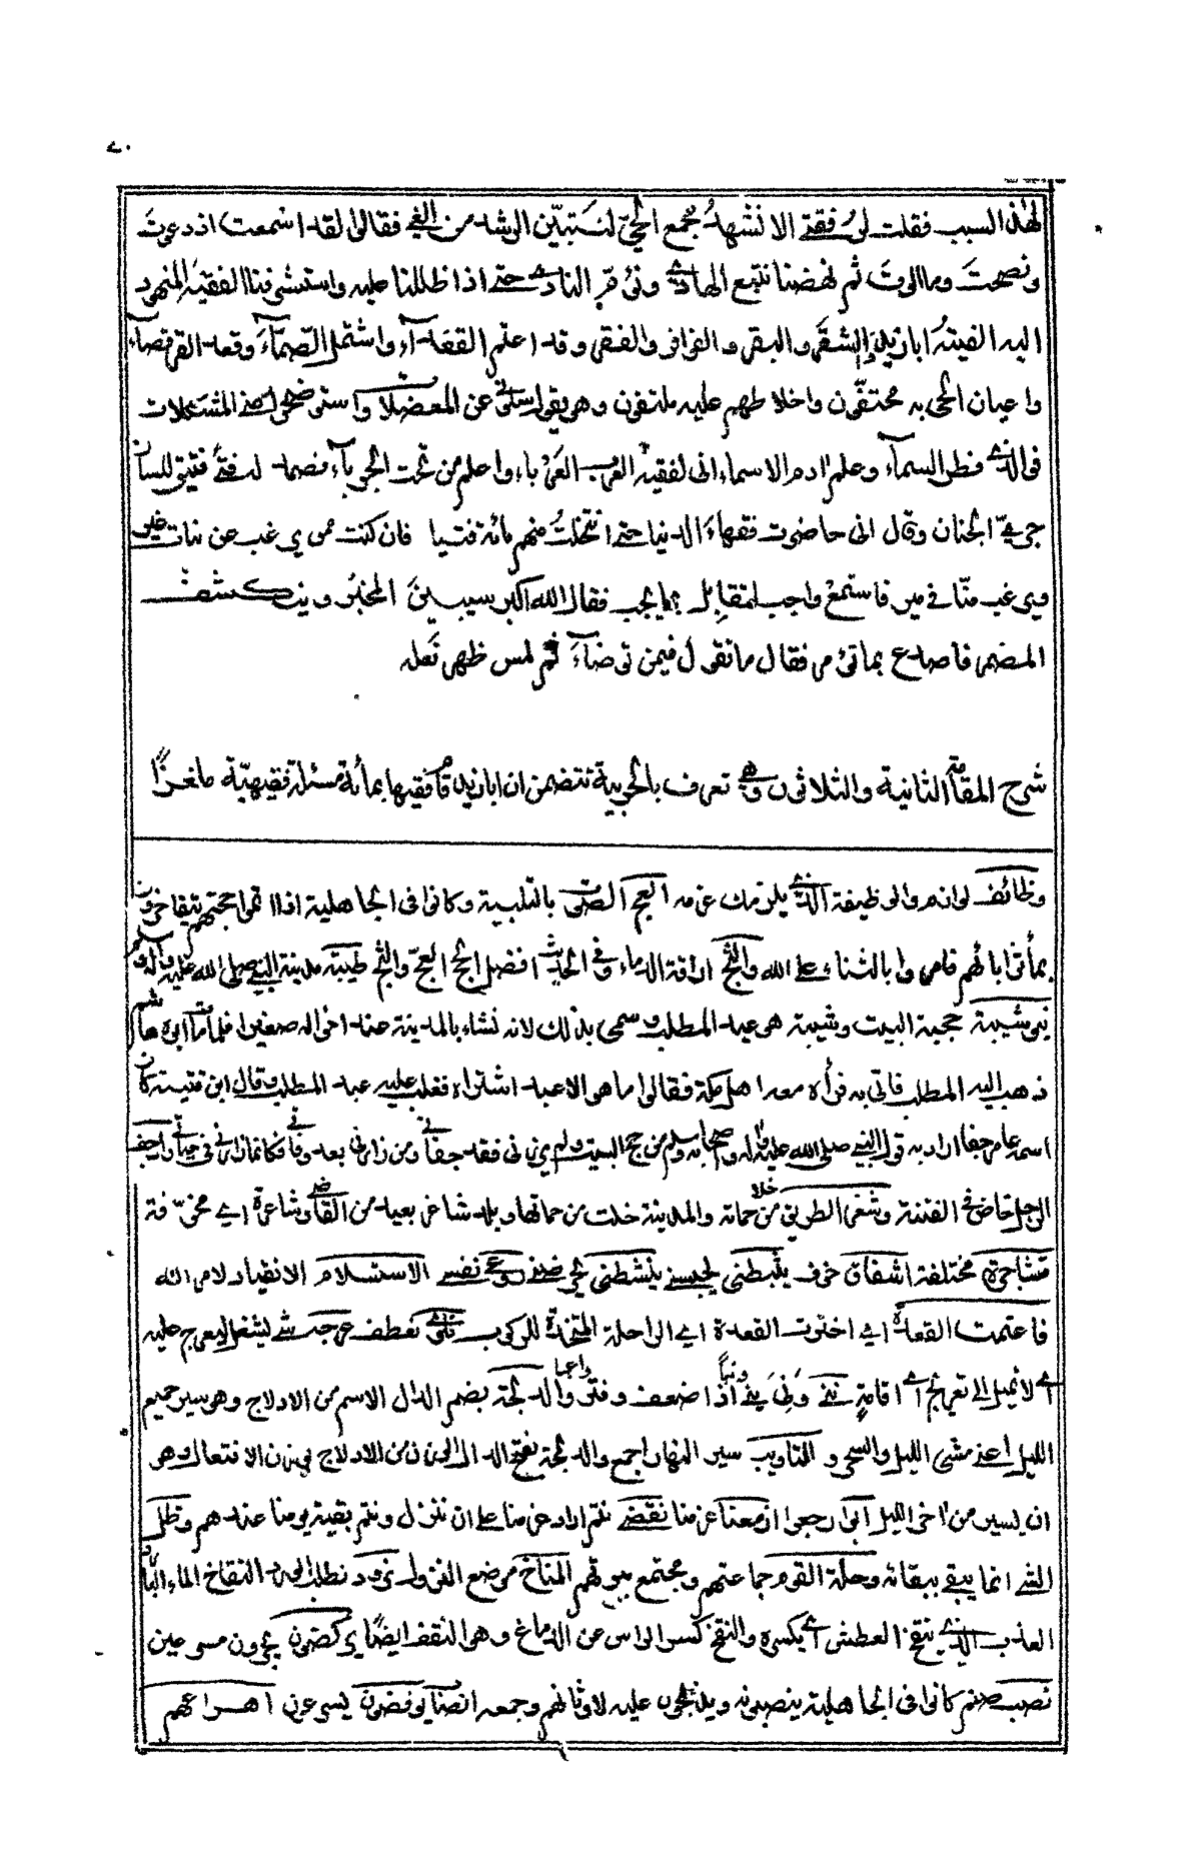 ٧٠
لهذا السبب فقلت لرفقتي الا نشهد مجمع الحيّ لنتبيّن الرشد من الغي فقالوا لقد اسمعت اذ دعوت
ونصحت وما الوت ثم نهضنا نتبع الهادي ونؤم النادي حتى اذا اظللنا عليه واستشرفنا الفقيه المنهود
اليه الفيته ابا زيد ذا الشقر والبقر والفواقر والفقر وقد اعتم القفداء واشتمل الصّمّاء وقعد القرفصاء
واعيان الحي به محتفّون واخلاطهم عليه ملتفون وهو يقول سلوني عن المعضلات واستوضحوا مني المشكلات
فوالذي فطر السماء وعلم ادم الاسماء انى لفقيه العرب العرباء واعلم من تحت الجرباء فصمد له فتى فتيق اللسان
جريّ الجنان وقال انى حاضرت فقهاء الدنيا حتى انتخلت منهم مائة فتيا فان كنت ممن يرغب عن بنات غير
ويرغب منّا في مير فاستمع واجب لتقابل بما يجب فقال الله اكبر سيبين المخبر وينكشف
المضمر فاصدع بما تؤمر فقال ما تقول فيمن توضاء ثم لمس ظهر نعله
شرح المقامة الثانية والثلاثون وهي تعرف بالحربية تتضمن ان ابا زيد قام فقيها بمائة مسئلة فقيهيّة ملغزًا
وظائف لوازم والوظيفة الذي يلزمك غرمه العج الصوت بالتلبية وكانوا فى الجاهلية اذا اتموا حجتهم يتفاخرون
بمآثر ابائهم فامروا بالثناء على الله والثج اراقة الدماء وفي الحديث افضل الحج العجّ والثج طيبة مدينة النبي صلى الله عليه وآله وسلم
بنى شيبة حجبة البيت وشيبة هو عبد المطلب وسمى بذلك لانه نشاء بالمدينة عند اخواله صغيرا فلما مات ابوه هاشم
ذهب اليه المطلب فاتى به فرأه معه اهل مكة فقالوا ما هو الا عبد اشتراه فغلب عليه عبد المطلب وقال ابن قتيبة كان
اسمه عامر جفا اراد به قول النبي صلى الله عليه وآله واصحابه وسلم من حج البيت ولم يزرنى فقد جفانى ومن زارنى بعد وفاتى فكانما زارني فى حياتي وارجف
الرجل خاض في الفتنة وشغر الطريق خلا من حماته والمدينة خلت من حماتها وبلد شاغر بعيد من القاضي وشاغرة اي مخوّفة
متشاجرة مختلفة اشفاق خوف يثبطنى يحبسني ينشطنى يحرضني روعي نفسي الاستسلام الانقياد لامر الله
فاعتمت القعدة اي اخترت القعدة اي الراحلة المتخذة للركوب نلوي نعطف عرجت شي ليشغل ليعرج عليه
اي لا نميل الى تعريج اي اقامةٍ نني وَنَى يني ونيًا اذا ضعف وفتر واعيا والدلجة بضم الدال الاسم من الادلاج وهو سير جميع
الليل اعني مشى الليل والسحر والتاويب سير النهار اجمع والدلجة بفتح الدال الحزن من الادلاج بوزن الافتعال وهو
ان يسير من آخر الليل آبوا رجعوا ازمعنا عزمنا نقضي نتم اراد عزمنا على ان ننزل ونتم بقية يومنا عندهم وظل
الشئ انما يبقى ببقائه وحلة القوم جماعتهم ومجتمع بيوتهم المناخ موضع النزول نرود نطلب الورد النقاخ الماء البارد
العذب الذي ينقخ العطش اي يكسره والنقخ كسر الراس عن الدماغ وهو النقف ايضًا يركضون يجرون مسرعين
نصب صنم كانوا فى الجاهلية ينصبونه ويذبحون عليه لاوثانهم وجمعه انصاب يوفضون يسرعون اهراعهم